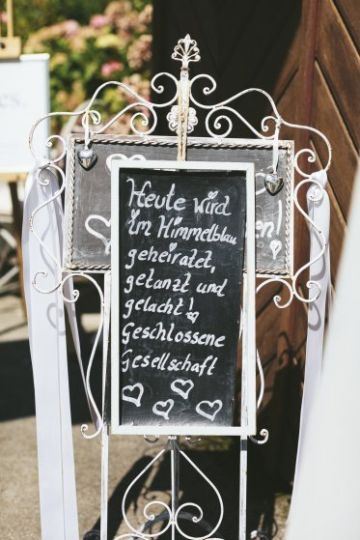 Heute wird
im Himmelblau
geheiratet,
getanzt und
gelacht!
Geschlossene
Gesellschaft